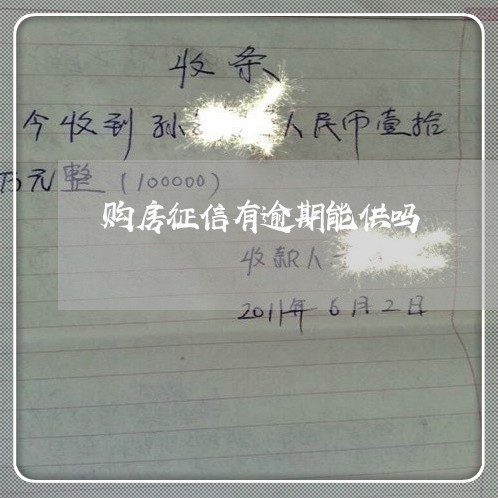 收条
今收到孙人民币壹拾
万元整（100000）
购房征信有逾期能供吗
收款人：
2011年6月2日